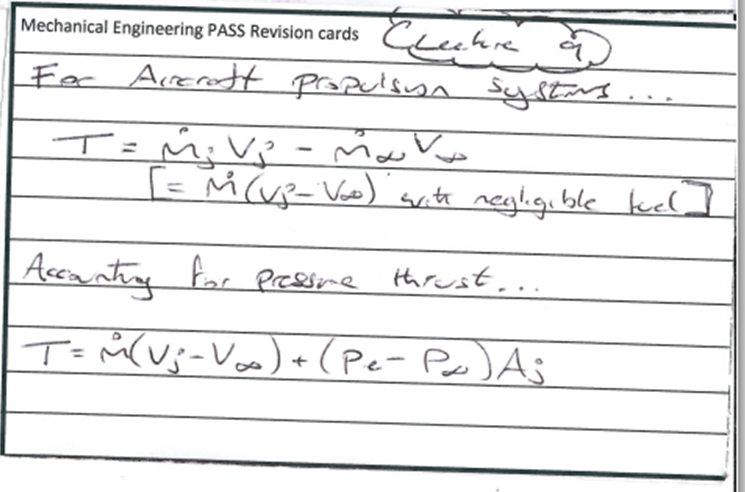 Mechanical Engineering PASS Revision cards Lecture 9
For Aircraft propulsion systems...
T = ṁⱼVⱼ - ṁ∞V∞
[= ṁ(Vⱼ-V∞) with negligible fuel]
Accounting for pressure thrust...
T = ṁ(Vⱼ-V∞) + (Pe- P∞)Aⱼ